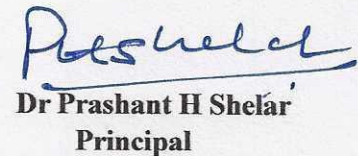 Dr Prashant H Shelar
Principal